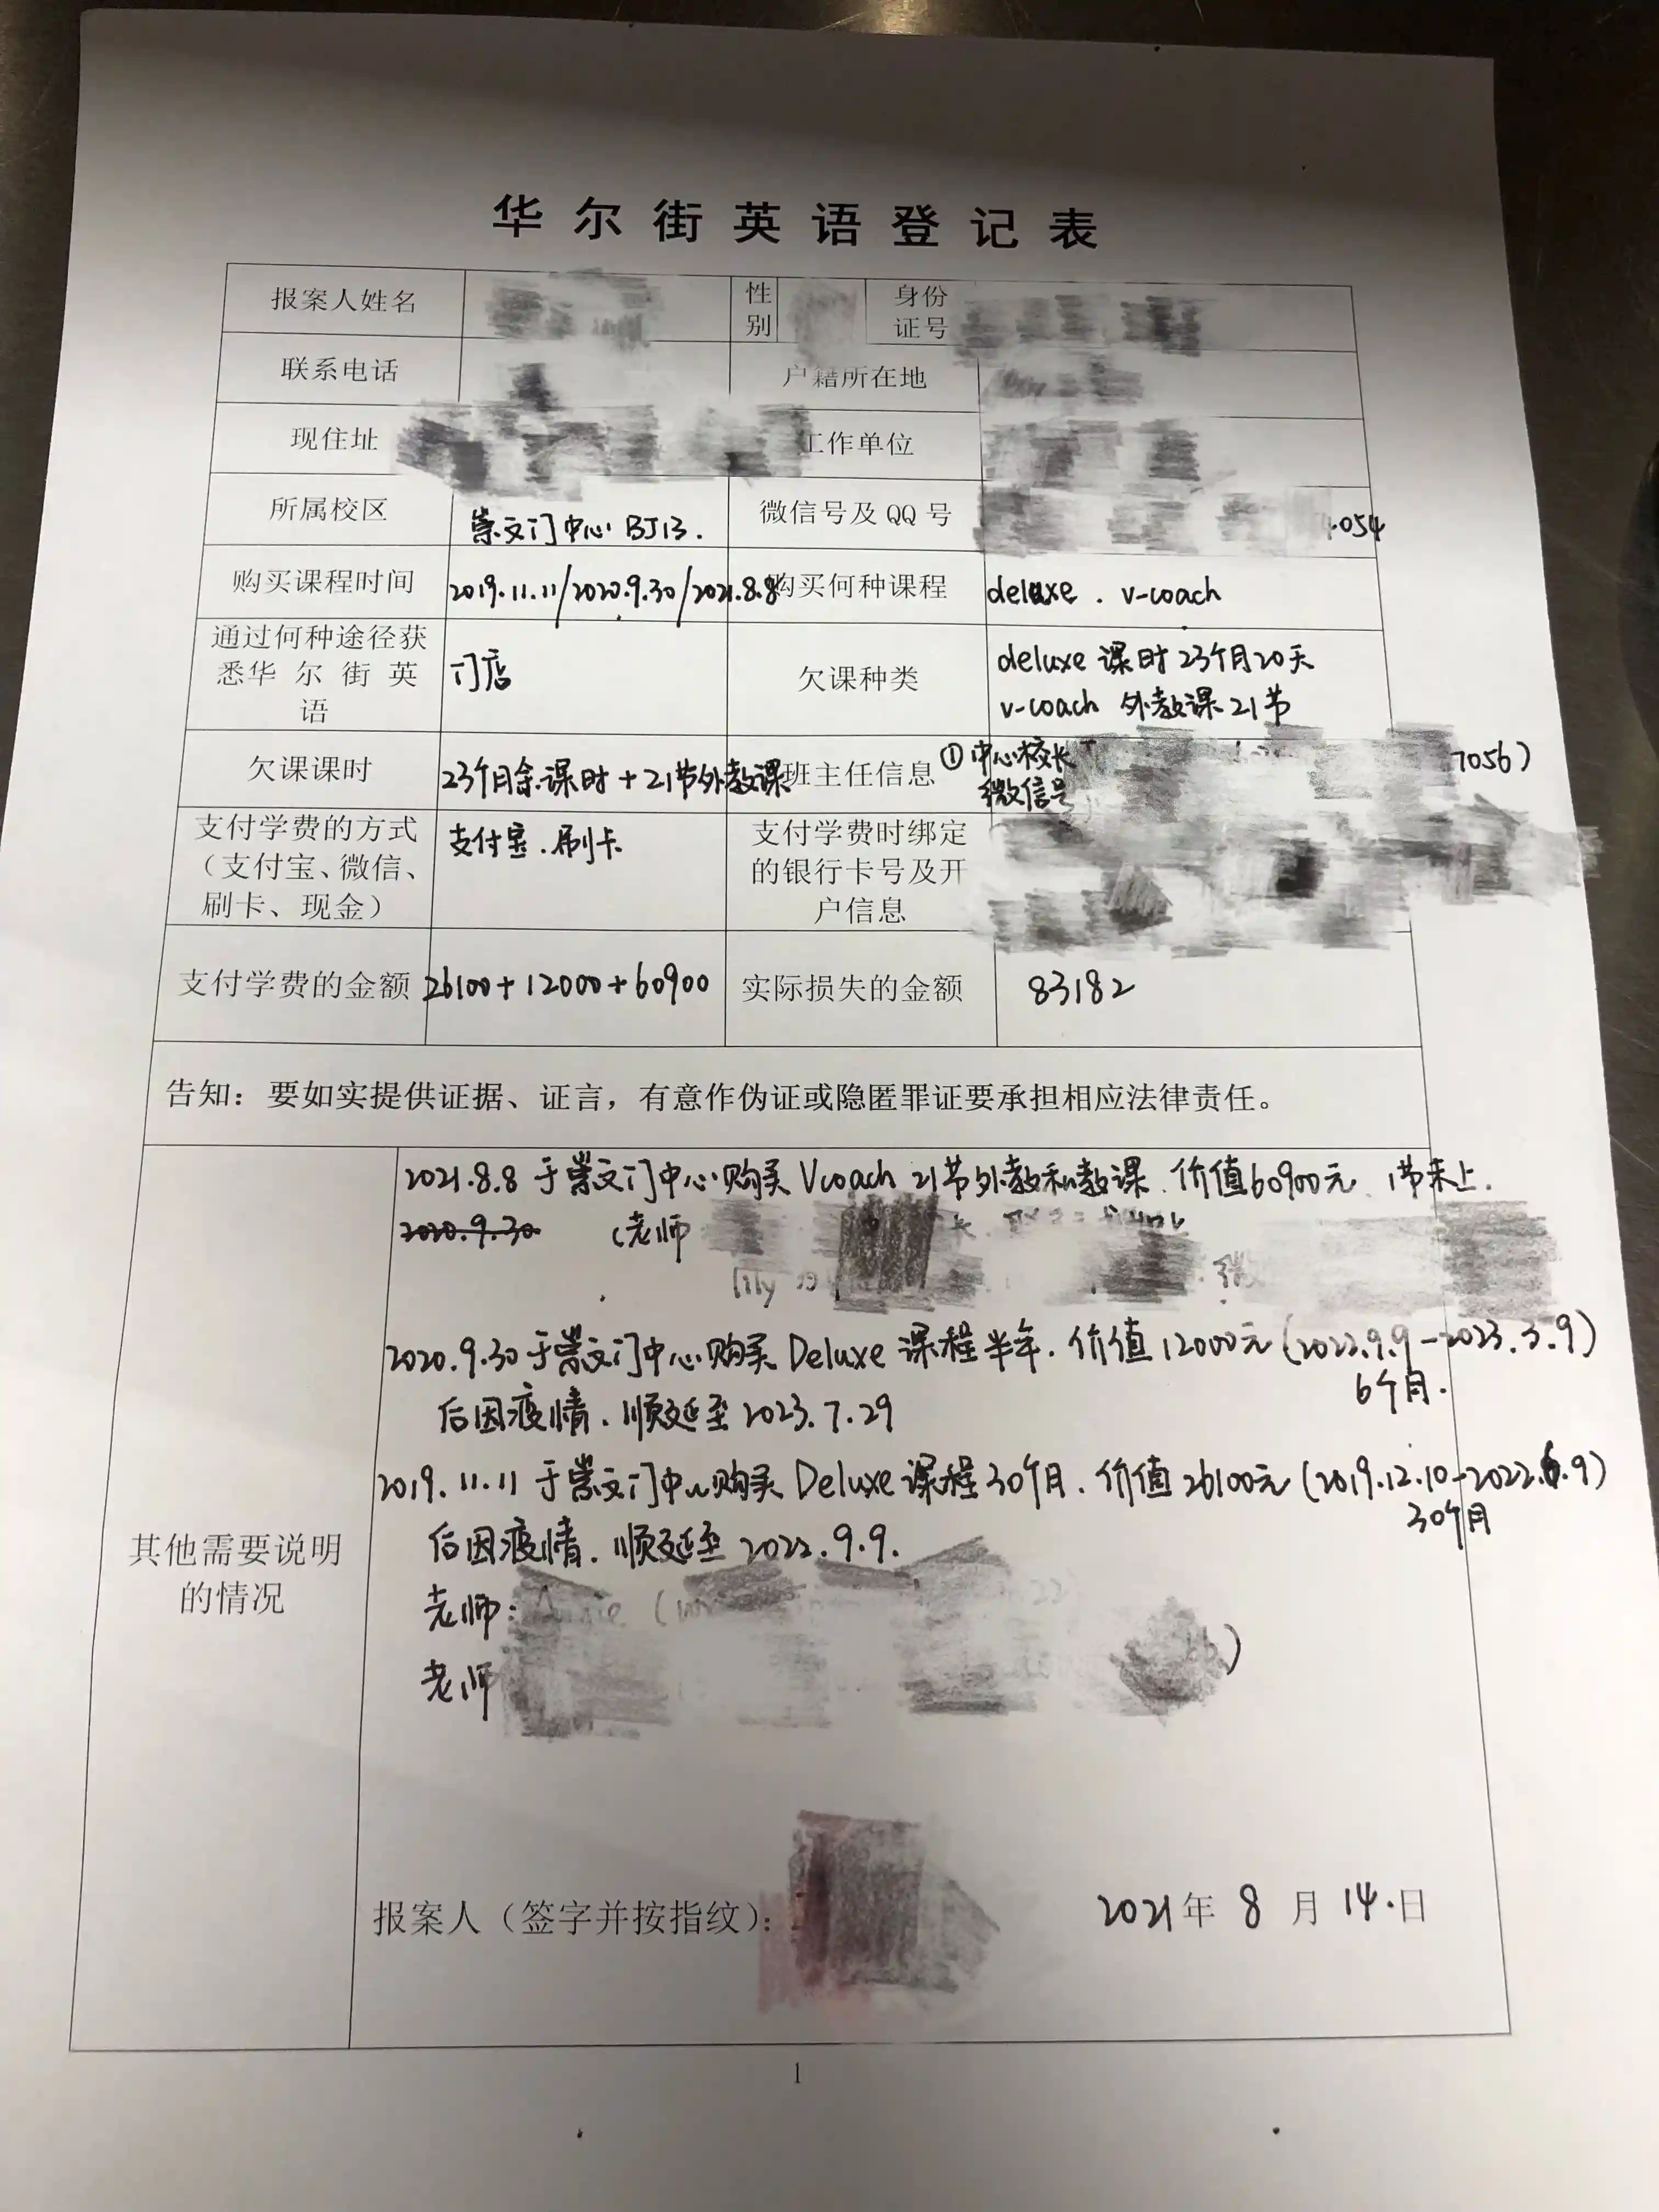 华尔街英语登记表
报案人姓名 性别 身份证号
联系电话 户籍所在地
现住址 工作单位
所属校区 崇文门中心 BJ13. 微信号及 QQ 号 4054
购买课程时间 2019.11.11/2020.9.30/2021.8.8 购买何种课程 deluxe . v-coach
通过何种途径获
悉华尔街英
语
门店
欠课种类
deluxe 课时 23个月20天
v-coach 外教课 21节
欠课课时 23个月余课时 + 21节外教课 班主任信息 ① 中心校长 7056)
微信号
支付学费的方式
(支付宝、微信、
刷卡、现金)
支付宝.刷卡
支付学费时绑定
的银行卡号及开
户信息
支付学费的金额 26100+12000+60900 实际损失的金额 83182
告知：要如实提供证据、证言，有意作伪证或隐匿罪证要承担相应法律责任。
其他需要说明
的情况
2021.8.8 于崇文门中心购买 Vcoach 21节外教私教课. 价值60900元. 1节未上.
2020.9.30 (老师
lily
2020.9.30 于崇文门中心购买 Deluxe 课程半年. 价值 12000元 (2022.9.9-2023.3.9)
6个月.
后因疫情. 顺延至 2023.7.29
2019.11.11 于崇文门中心购买 Deluxe 课程 30个月. 价值 26100元 (2019.12.10-2022.6.9)
30个月
后因疫情. 顺延至 2022.9.9.
老师:
老师 )
报案人（签字并按指纹）： 2021年 8 月 14.日
1